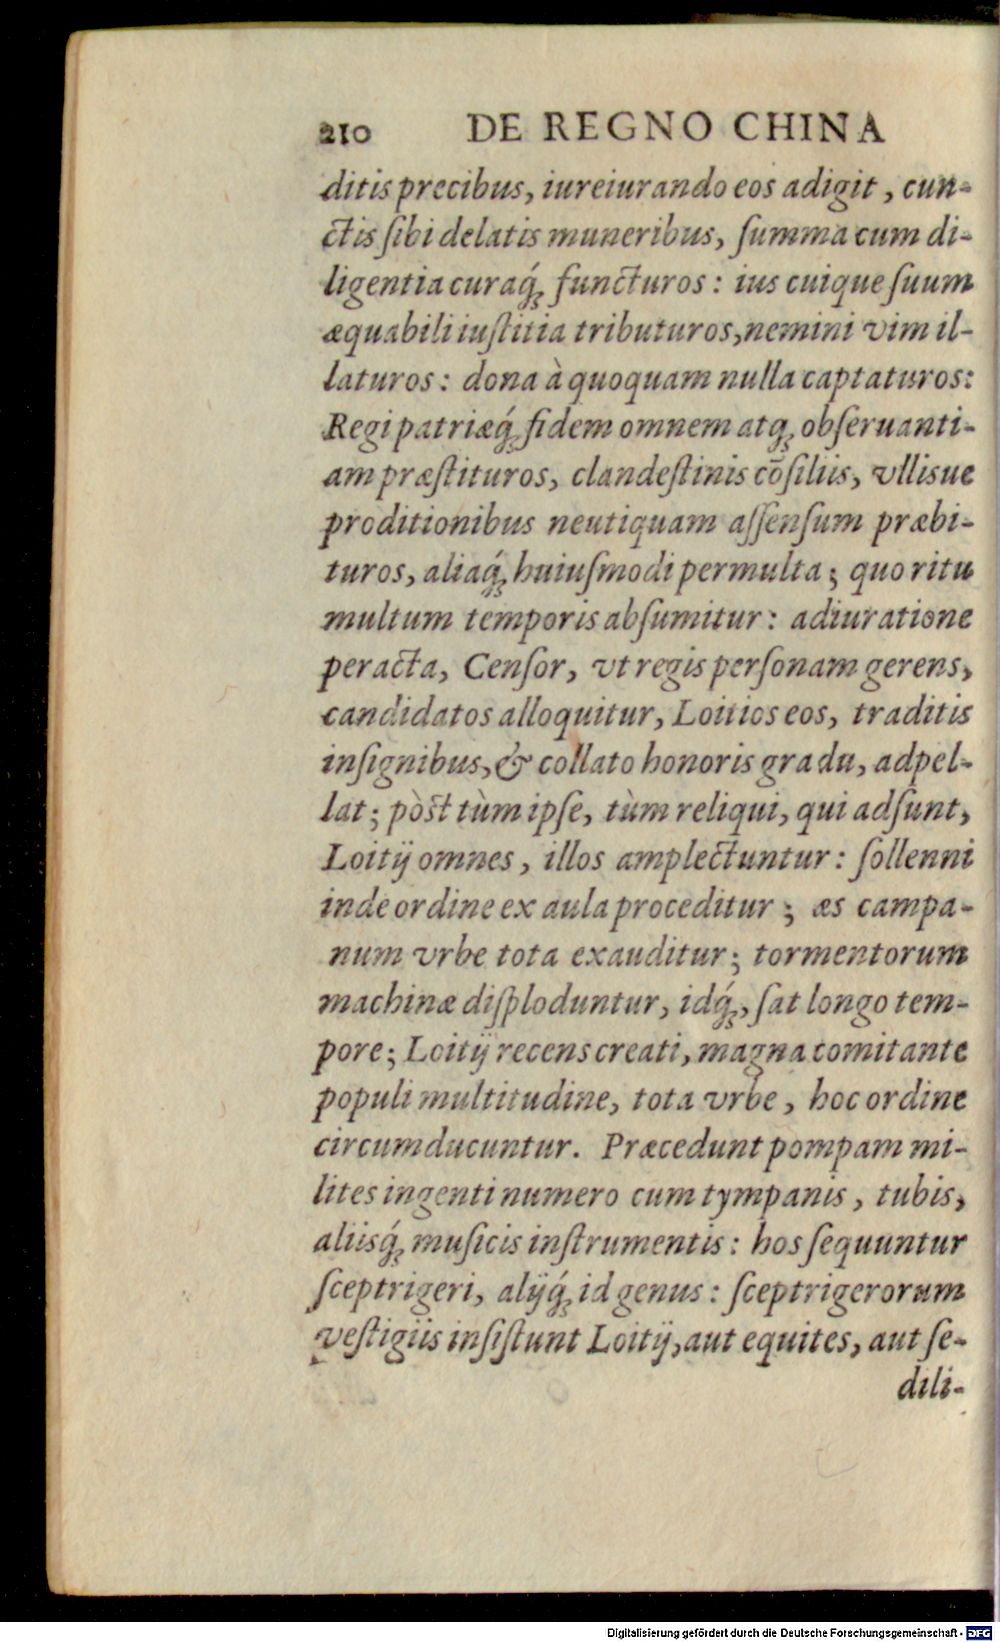 210 DE REGNO CHINA
ditis precibus, iureiurando eos adigit, cun-
ctis ſibi delatis muneribus, ſumma cum di-
ligentia curaq́ꝫ functuros: ius cuique ſuum
æquabili iuſtitia tributuros, nemini vim il-
laturos: dona à quoquam nulla captaturos:
Regi patriæq́ꝫ fidem omnem atqꝫ obſeruanti-
am præſtituros, clandeſtinis cōſiliis, vllisue
proditionibus neutiquam aſſenſum præbi-
turos, aliaq́ꝫ huiuſmodi permulta; quo ritu
multum temporis abſumitur: adiuratione
peracta, Cenſor, vt regis perſonam gerens,
candidatos alloquitur, Loitios eos, traditis
inſignibus, & collato honoris gradu, adpel-
lat; pòst tùm ipſe, tùm reliqui, qui adſunt,
Loitij omnes, illos amplectuntur: ſollenni
inde ordine ex aula proceditur; æs campa-
num vrbe tota exauditur; tormentorum
machinæ diſploduntur, idq́ꝫ, ſat longo tem-
pore; Loitij recens creati, magna comitante
populi multitudine, tota vrbe, hoc ordine
circumducuntur. Præcedunt pompam mi-
lites ingenti numero cum tympanis, tubis,
aliisq́ꝫ muſicis inſtrumentis: hos ſequuntur
ſceptrigeri, alijq́ꝫ id genus: ſceptrigerorum
veſtigiis inſiſtunt Loitij, aut equites, aut ſe-
dili-
Digitalisierung gefördert durch die Deutsche Forschungsgemeinschaft - DFG